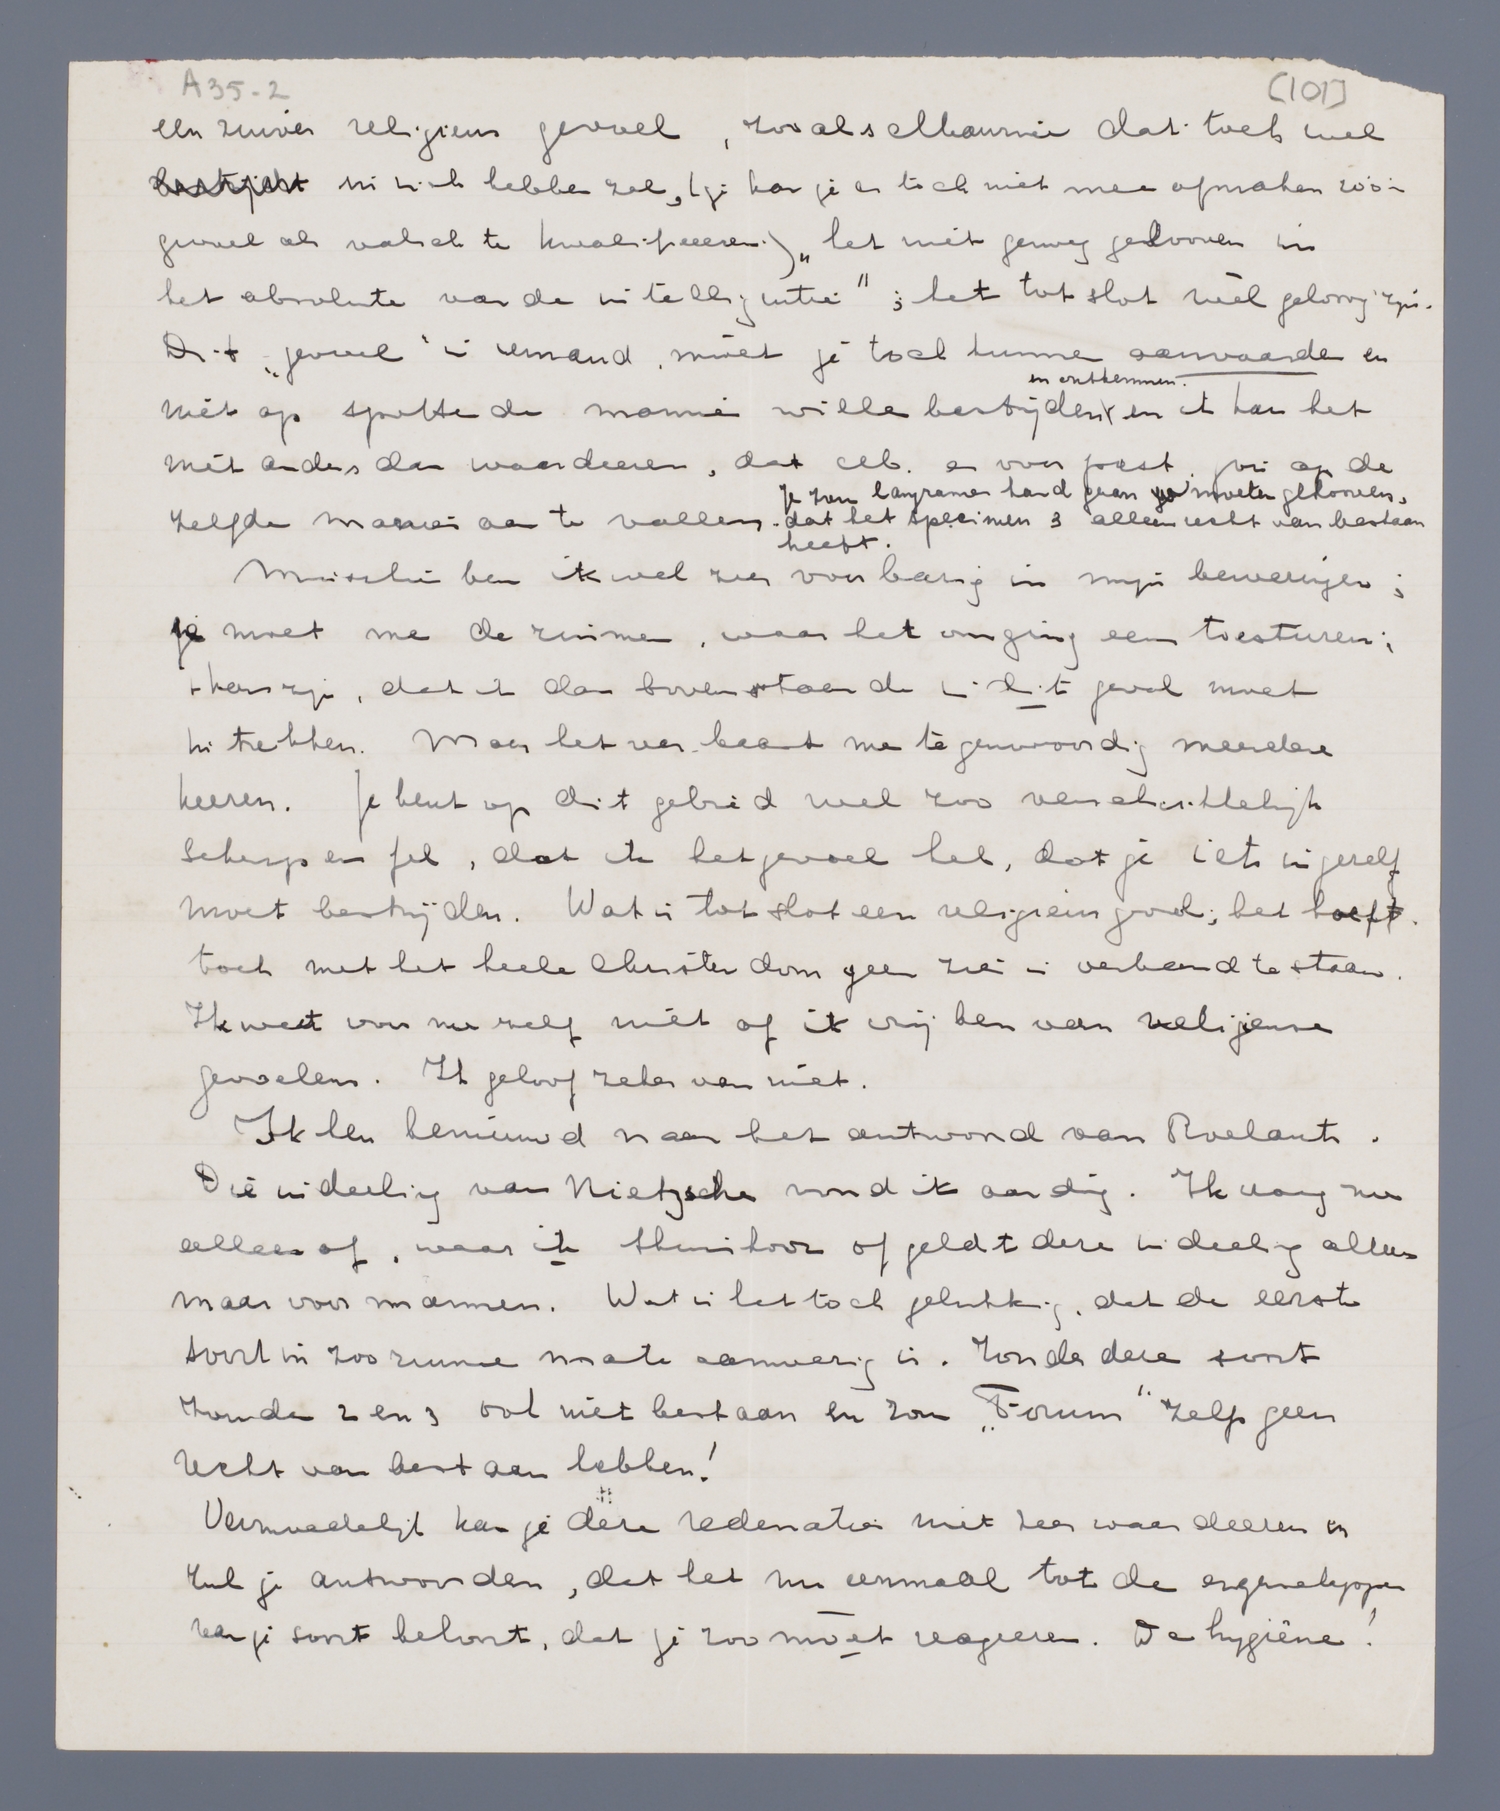 A35-2
[101]
een zuiver religieus gevoel, zooals Albournie dat toch wel
in zich hebben zal, (je kan je er toch niet mee afmaken zoo'n
gevoel als valsch te kwalificeeren.) „het niet genoeg gelooven in
het absolute van de intelligentie"; het tot slot wèl geloovig zijn.
Dit „gevoel" in iemand, móét je toch kunnen aanvaarden en
niet op spottende manier willen bestrijden en ik kan het
en ontkennen.
niet anders dan waardeeren, dat er voor past, jou op de
zelfde manier aan te vallen.
Je zou langzamerhand gaan moeten gelooven,
dat het specimen 3 alleen recht van bestaan
heeft.
Misschien ben ik wel zeer voorbarig in mijn beweringen;
je moet me de ruimen, waar het om ging eens toesturen;
't kan zijn, dat ik dan bovenstaande in dit geval moet
intrekken. Maar het verbaast me tegenwoordig meerdere
keeren. Je bent op dit gebied wel zoo verschrikkelijk
scherp en fel, dat ik het gevoel heb, dat je iets in jezelf
moet bestrijden. Wat is tot slot een religieus gevoel; het hoeft
toch met het heele Christendom geen zier in verband te staan.
Ik weet voor me zelf niet of ik vrij ben van religieuse
gevoelens. Ik geloof zeker van niet.
Ik ben benieuwd naar het antwoord van Roelants.
Die indeeling van Nietzsche vond ik aardig. Ik vraag me
alleen af, waar ik thuishoor of geldt deze indeeling alleen
maar voor mannen. Wat is het toch gelukkig, dat de eerste
soort in zoo ruime mate aanwezig is. Zonder deze soort
zouden 2 en 3 ook niet bestaan en zou „Forum" zelf geen
recht van bestaan hebben!
Vermoedelijk kan je deze redenatie niet zeer waardeeren en
zul je antwoorden, dat het nu eenmaal tot de eigenschappen
van je soort behoort, dat je zoo móet reageeren. De hygiëne!